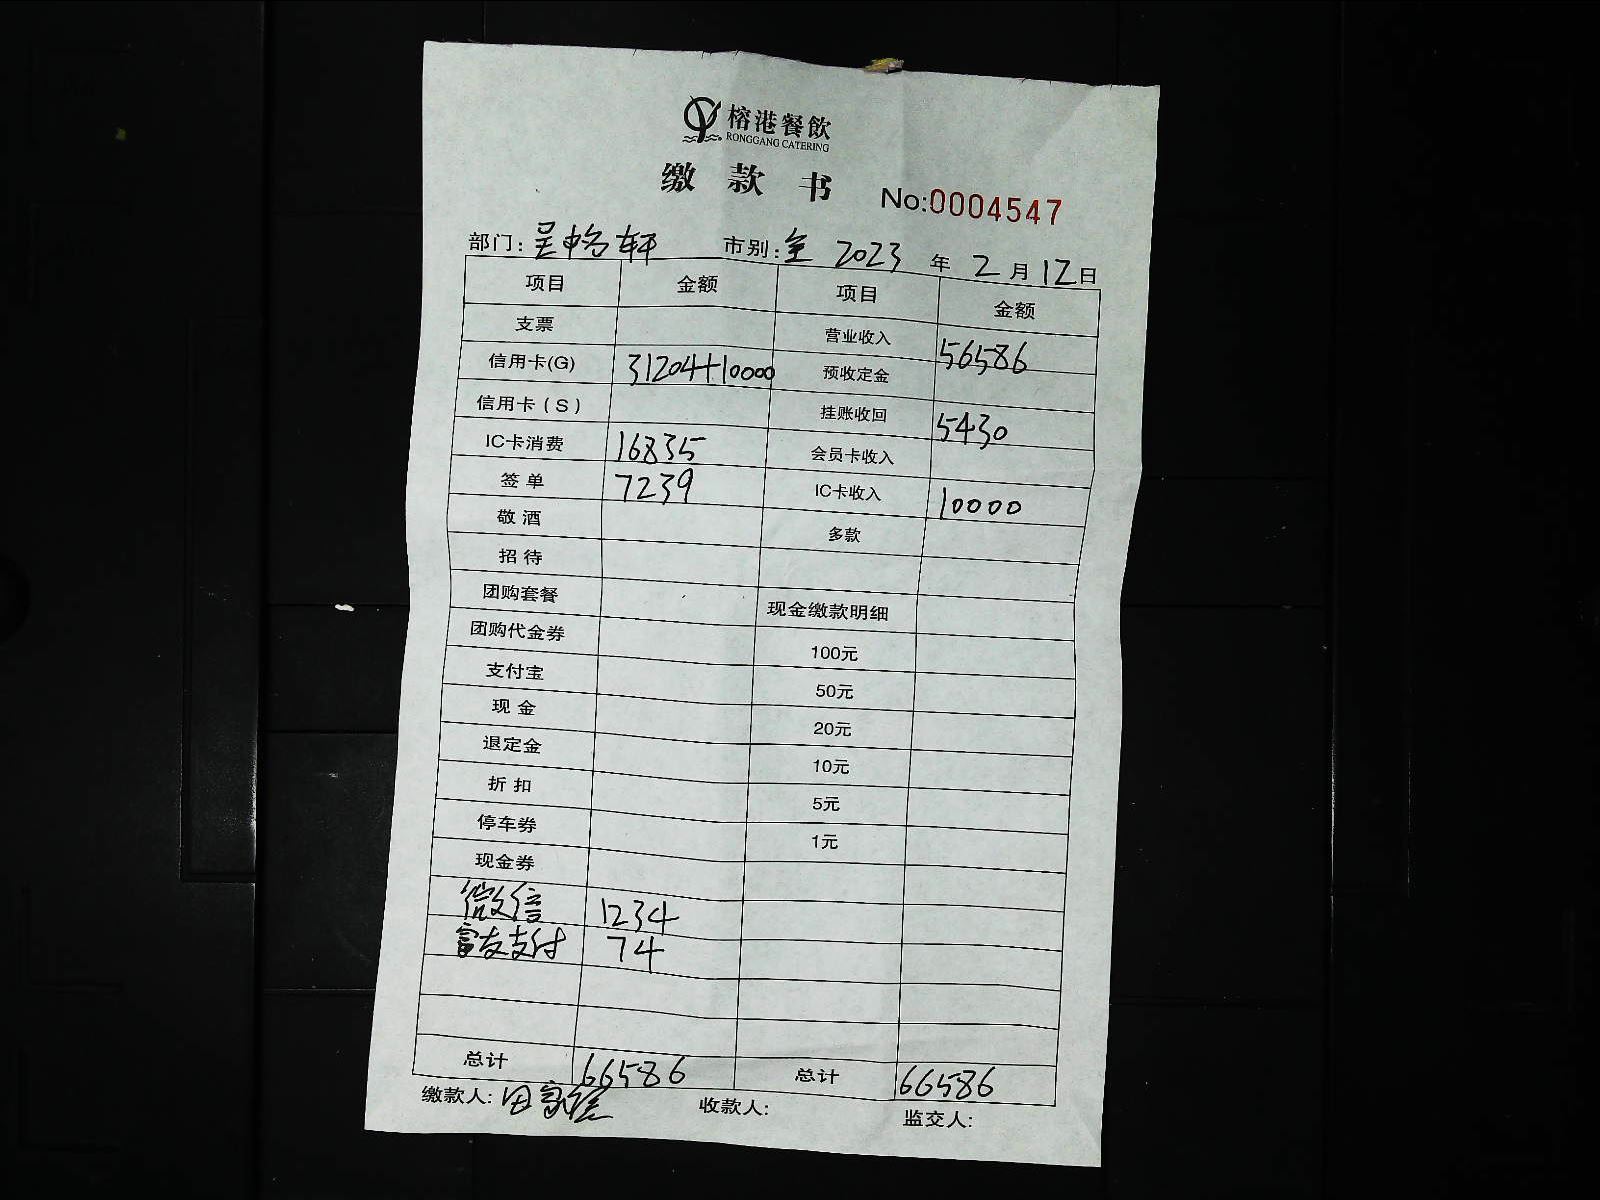 榕港餐飲
RONGGANG CATERING
缴款书 No:0004547
部门: 市别:全 2023年2月12日
项目 金额 项目 金额
支票 营业收入 56586
信用卡(G) 31204+10000 预收定金
信用卡(S) 挂账收回 5430
IC卡消费 16835 会员卡收入
签单 7239 IC卡收入 10000
敬酒 多款
招待
团购套餐 现金缴款明细
团购代金券 100元
支付宝 50元
现金 20元
退定金 10元
折扣 5元
停车券 1元
现金券
微信 1234
富友支付 74
总计 66586 总计 66586
缴款人: 收款人: 监交人: